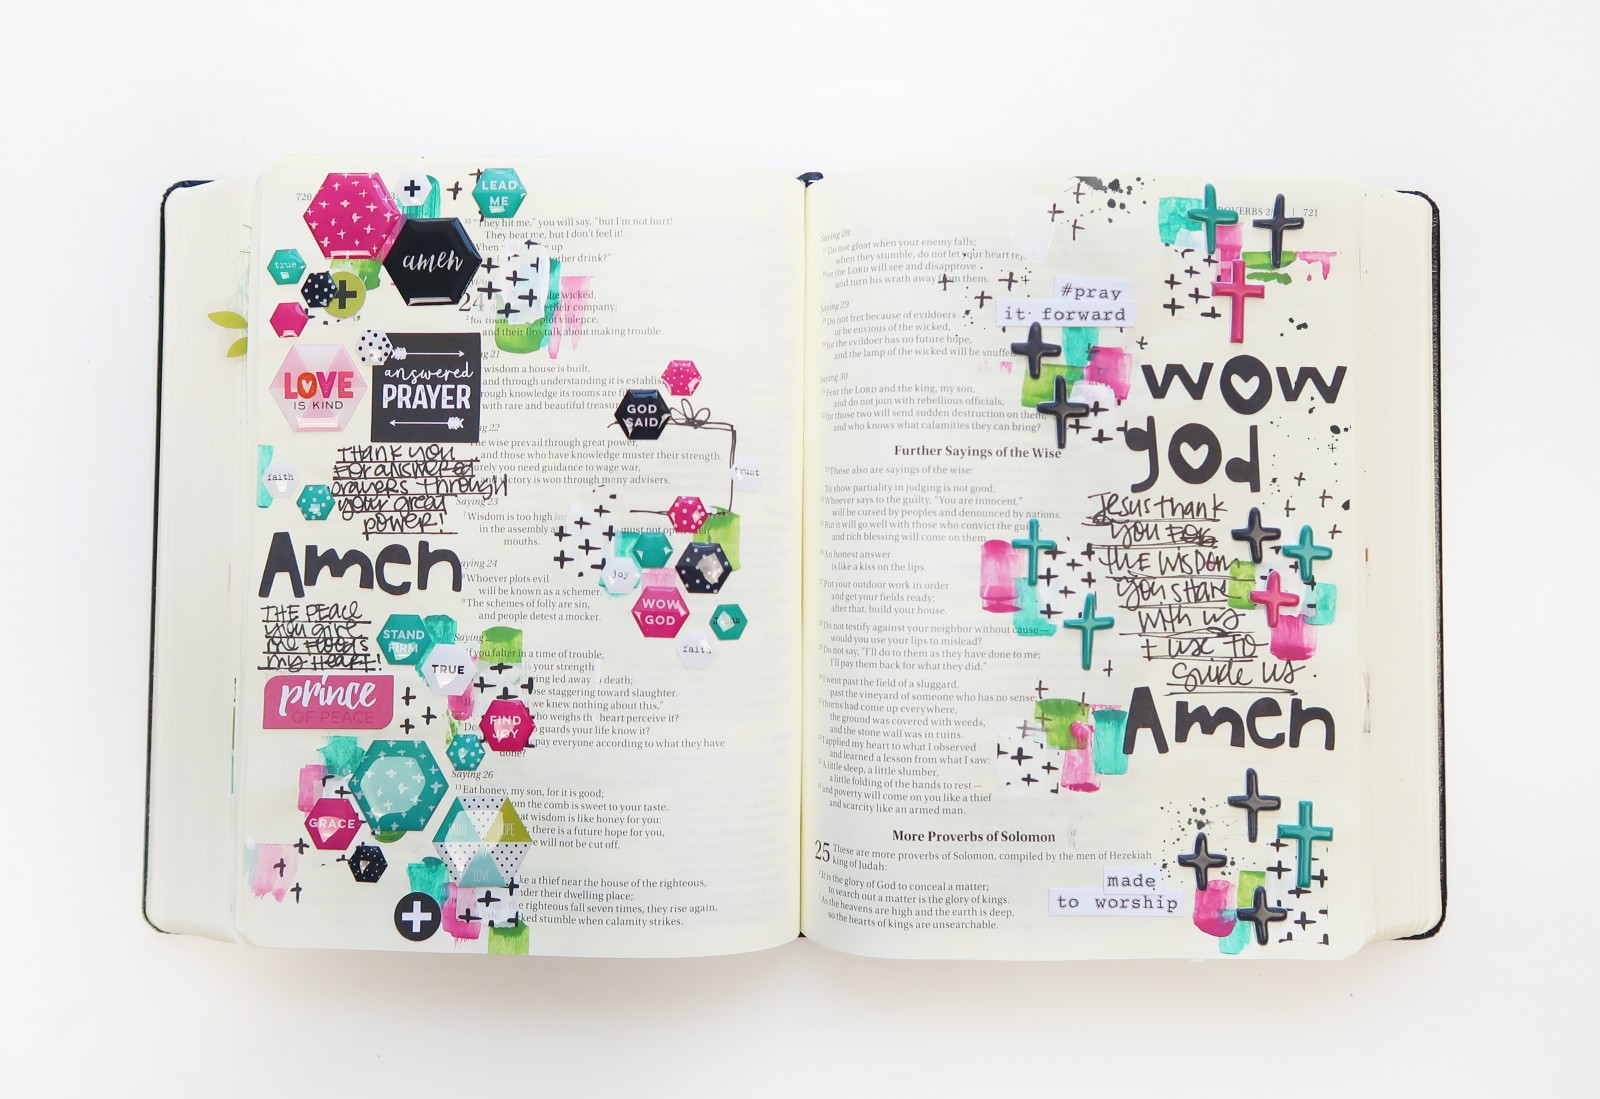 720
LEAD
ME
true
amen
35 "They hit me," you will say, "but I'm not hurt!
They beat me, but I don't feel it!
When up
drink?"
24
wicked,
their company;
2 for their plot violence,
and their lips talk about making trouble.
21
wisdom a house is built,
and through understanding it is establis
rough knowledge its rooms are fil
with rare and beautiful treasur
LOVE
IS KIND
answered
PRAYER
GOD
SAID
22
The wise prevail through great power,
and those who have knowledge muster their strength.
urely you need guidance to wage war,
and victory is won through many advisers.
THANK YOU
FOR answered
prayers through
your great
power!
faith
trust
Saying 23
7 Wisdom is too high fo
in the assembly a must not open their
mouths.
Amen
Saying 24
8 Whoever plots evil
will be known as a schemer.
9 The schemes of folly are sin,
and people detest a mocker.
joy
WOW
GOD
Jesus
faith
THE PEACE
you give
me floods
my Heart!
STAND
FIRM
TRUE
prince
OF PEACE
FIND
JOY
Saying
If you falter in a time of trouble,
is your strength
being led away death;
those staggering toward slaughter.
we knew nothing about this,"
who weighs th heart perceive it?
guards your life know it?
pay everyone according to what they have
done?
Saying 26
13 Eat honey, my son, for it is good;
from the comb is sweet to your taste.
that wisdom is like honey for you:
there is a future hope for you,
will not be cut off.
GRACE
FAITH
HOPE
LOVE
like a thief near the house of the righteous,
their dwelling place;
the righteous fall seven times, they rise again,
stumble when calamity strikes.
PROVERBS 721
Saying 28
17 Do not gloat when your enemy falls;
when they stumble, do not let your heart rej
18 or the LORD will see and disapprove
and turn his wrath away from them.
Saying 29
19 Do not fret because of evildoers
or be envious of the wicked,
20 for the evildoer has no future hope,
and the lamp of the wicked will be snuffed
Saying 30
21 Fear the LORD and the king, my son,
and do not join with rebellious officials,
22 for those two will send sudden destruction on them,
and who knows what calamities they can bring?
#pray
it forward
wow
god
Further Sayings of the Wise
23 These also are sayings of the wise:
To show partiality in judging is not good:
24 Whoever says to the guilty, "You are innocent,"
will be cursed by peoples and denounced by nations.
25 But it will go well with those who convict the guilty,
and rich blessing will come on them.
26 An honest answer
is like a kiss on the lips.
27 Put your outdoor work in order
and get your fields ready;
after that, build your house.
28 Do not testify against your neighbor without cause—
would you use your lips to mislead?
29 Do not say, "I'll do to them as they have done to me;
I'll pay them back for what they did."
30 I went past the field of a sluggard,
past the vineyard of someone who has no sense;
31 thorns had come up everywhere,
the ground was covered with weeds,
and the stone wall was in ruins.
32 I applied my heart to what I observed
and learned a lesson from what I saw:
33 A little sleep, a little slumber,
a little folding of the hands to rest—
34 and poverty will come on you like a thief
and scarcity like an armed man.
Jesus thank
you
THE WISDOM
you share
with us
I use to
guide us.
Amen
More Proverbs of Solomon
25 These are more proverbs of Solomon, compiled by the men of Hezekiah
king of Judah:
2 It is the glory of God to conceal a matter;
to search out a matter is the glory of kings.
3 As the heavens are high and the earth is deep,
so the hearts of kings are unsearchable.
made
to worship